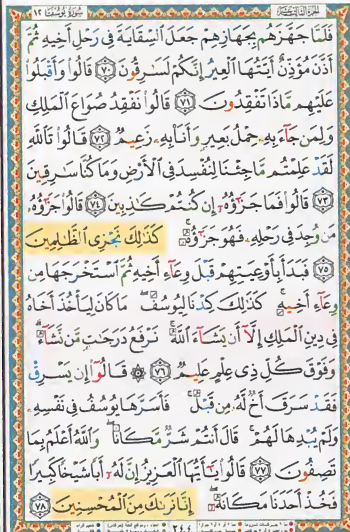 سورة يوسف ١٢
فَلَمَّا جَهَّزَهُم بِجَهَازِهِمْ جَعَلَ ٱلسِّقَايَةَ فِى رَحْلِ أَخِيهِ ثُمَّ
أَذَّنَ مُؤَذِّنٌ أَيَّتُهَا ٱلْعِيرُ إِنَّكُمْ لَسَٰرِقُونَ ٧٠ قَالُوا۟ وَأَقْبَلُوا۟
عَلَيْهِم مَّاذَا تَفْقِدُونَ ٧١ قَالُوا۟ نَفْقِدُ صُوَاعَ ٱلْمَلِكِ
وَلِمَن جَآءَ بِهِۦ حِمْلُ بَعِيرٍ وَأَنَا۠ بِهِۦ زَعِيمٌ ٧٢ قَالُوا۟ تَٱللَّهِ
لَقَدْ عَلِمْتُم مَّا جِئْنَا لِنُفْسِدَ فِى ٱلْأَرْضِ وَمَا كُنَّا سَٰرِقِينَ
٧٣ قَالُوا۟ فَمَا جَزَٰٓؤُهُۥٓ إِن كُنتُمْ كَٰذِبِينَ ٧٤ قَالُوا۟ جَزَٰٓؤُهُۥ
مَن وُجِدَ فِى رَحْلِهِۦ فَهُوَ جَزَٰٓؤُهُۥ ۚ كَذَٰلِكَ نَجْزِى ٱلظَّٰلِمِينَ
٧٥ فَبَدَأَ بِأَوْعِيَتِهِمْ قَبْلَ وِعَآءِ أَخِيهِ ثُمَّ ٱسْتَخْرَجَهَا مِن
وِعَآءِ أَخِيهِ ۚ كَذَٰلِكَ كِدْنَا لِيُوسُفَ ۖ مَا كَانَ لِيَأْخُذَ أَخَاهُ
فِى دِينِ ٱلْمَلِكِ إِلَّآ أَن يَشَآءَ ٱللَّهُ ۚ نَرْفَعُ دَرَجَٰتٍ مَّن نَّشَآءُ ۗ
وَفَوْقَ كُلِّ ذِى عِلْمٍ عَلِيمٌ ٧٦ ۞ قَالُوٓا۟ إِن يَسْرِقْ
فَقَدْ سَرَقَ أَخٌ لَّهُۥ مِن قَبْلُ ۚ فَأَسَرَّهَا يُوسُفُ فِى نَفْسِهِۦ
وَلَمْ يُبْدِهَا لَهُمْ ۚ قَالَ أَنتُمْ شَرٌّ مَّكَانًا ۖ وَٱللَّهُ أَعْلَمُ بِمَا
تَصِفُونَ ٧٧ قَالُوا۟ يَٰٓأَيُّهَا ٱلْعَزِيزُ إِنَّ لَهُۥٓ أَبًا شَيْخًا كَبِيرًا
فَخُذْ أَحَدَنَا مَكَانَهُۥٓ ۖ إِنَّا نَرَىٰكَ مِنَ ٱلْمُحْسِنِينَ ٧٨
٢٤٤